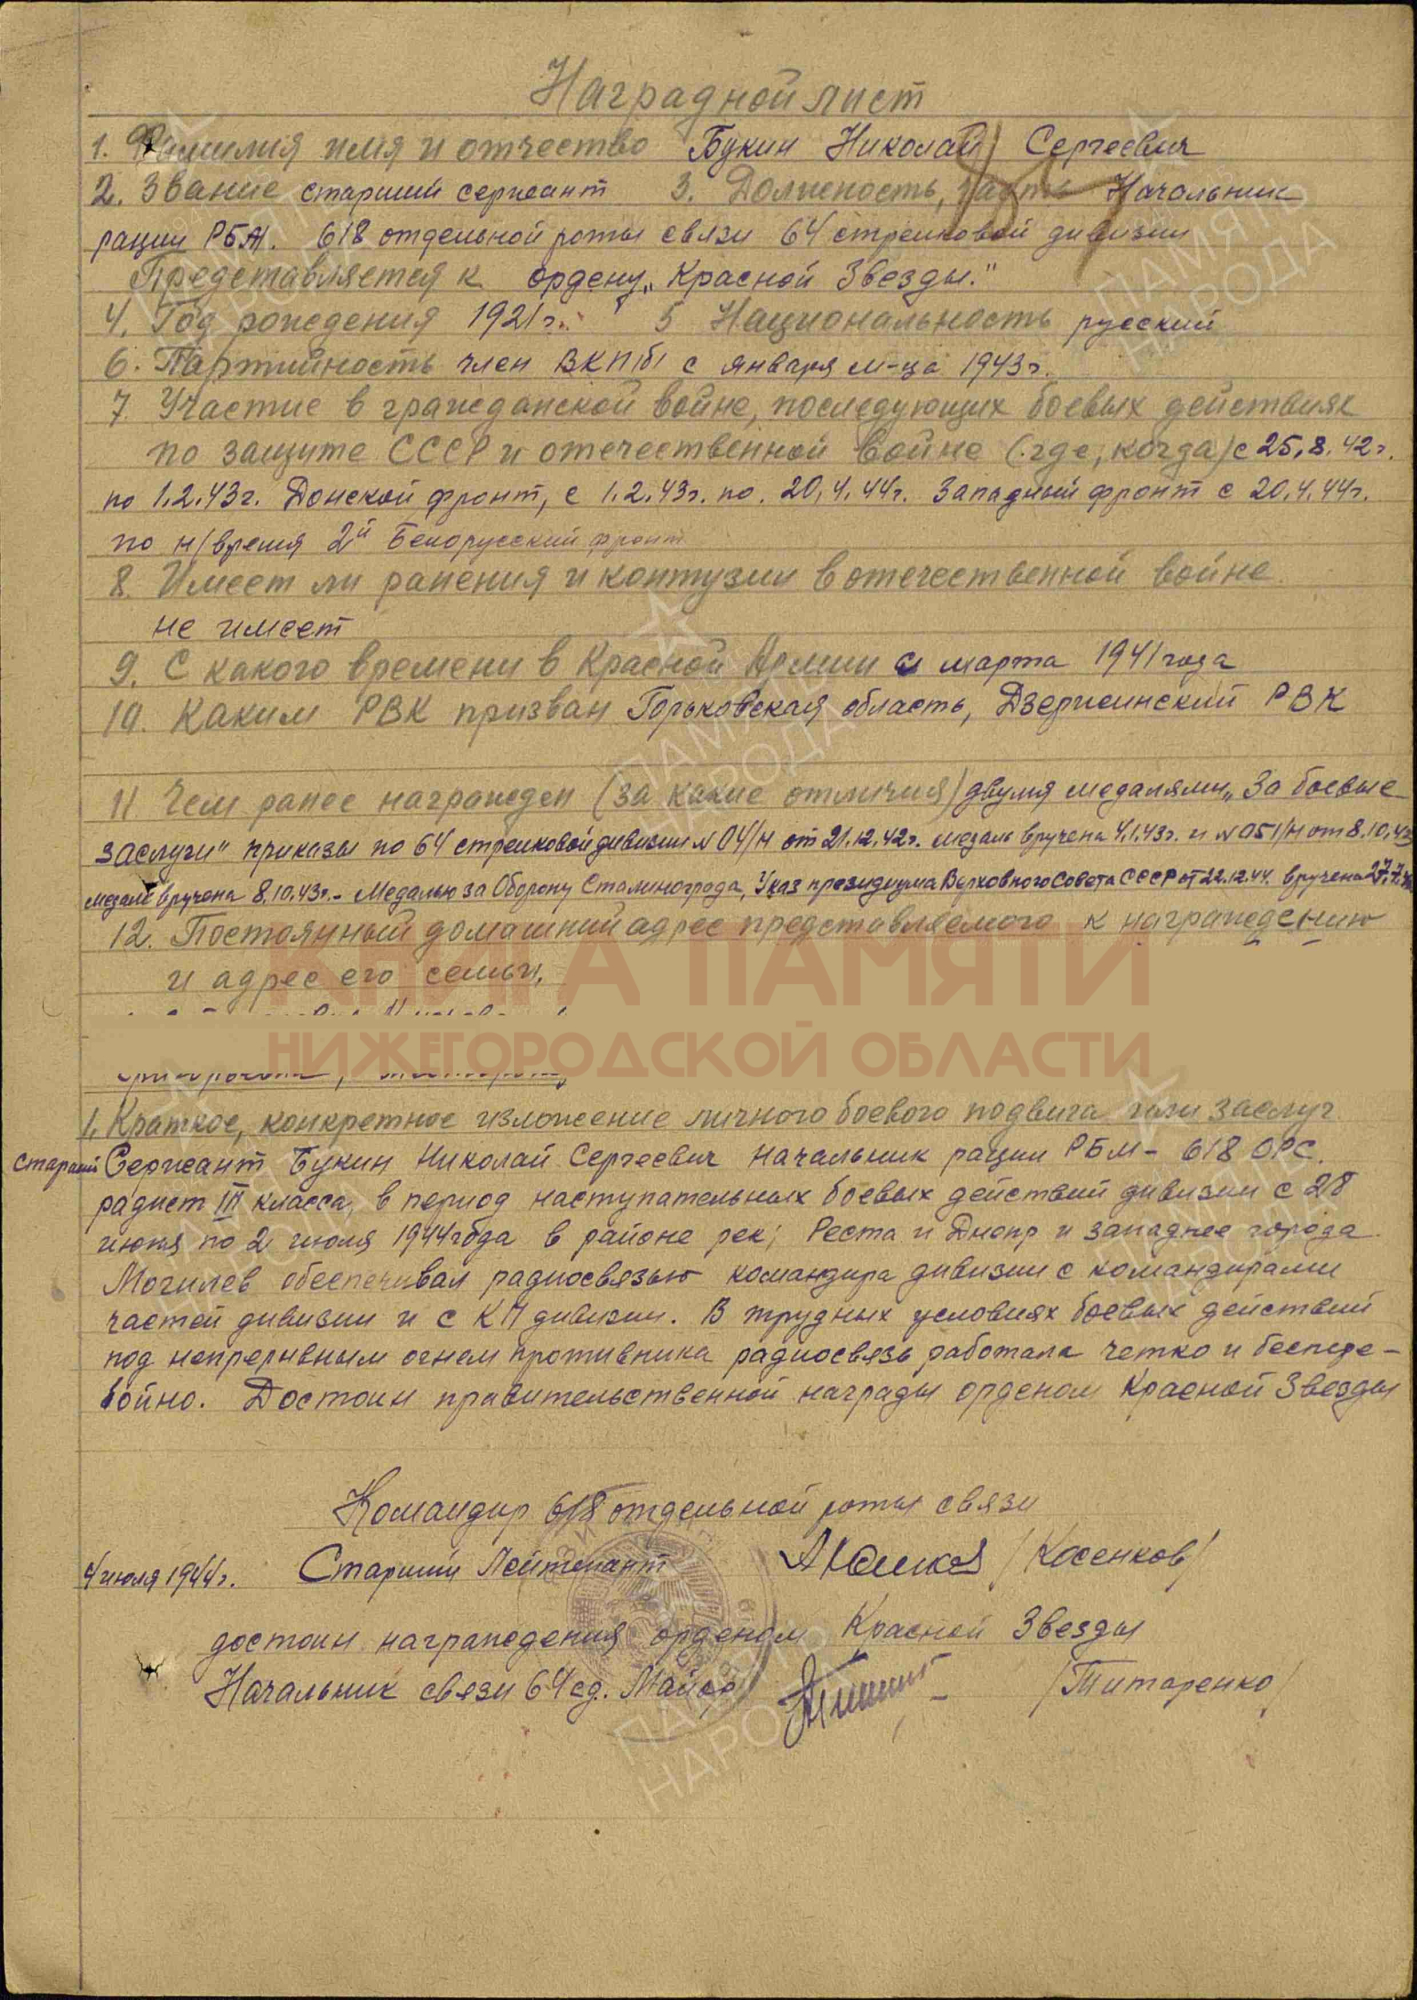 Наградной лист
1. Фамилия имя и отчество Букин Николай Сергеевич
2. Звание старший сержант 3. Должность, часть Начальник
рации РБМ. 618 отдельной роты связи 64 стрелковой дивизии
Представляется к ордену „Красной Звезды."
4. Год рождения 1921г. 5 Национальность русский
6. Партийность член ВКП(б) с января м-ца 1943г.
7. Участие в гражданской войне, последующих боевых действиях
по защите СССР и отечественной войне (где, когда) с 25.8.42г.
по 1.2.43г. Донской фронт, с 1.2.43г. по 20.4.44г. Западный фронт с 20.4.44г.
по н/время 2й Белорусский фронт
8. Имеет ли ранения и контузии в отечественной войне
не имеет
9. С какого времени в Красной Армии с марта 1941 года
10. Каким РВК призван Горьковская область, Дзержинский РВК
11 Чем ранее награжден (за какие отличия) двумя медалями „За боевые
заслуги" приказы по 64 стрелковой дивизии №04/н от 21.12.42г. медаль вручена 4.1.43г. и №051/н от 8.10.43г
медаль вручена 8.10.43г. - Медалью за Оборону Сталинграда, Указ президиума Верховного Совета СССР от 22.12.44. вручена
12. Постоянный домашний адрес представляемого к награждению
и адрес его семьи.
КНИГА ПАМЯТИ
НИЖЕГОРОДСКОЙ ОБЛАСТИ
1. Краткое, конкретное изложение личного боевого подвига или заслуг
старший Сержант Букин Николай Сергеевич начальник рации РБМ - 618 ОРС.
радист III класса, в период наступательных боевых действий дивизии с 28
июня по 2 июля 1944 года в районе рек; Реста и Днепр и западнее города
Могилев обеспечивал радиосвязью командира дивизии с командирами
частей дивизии и с КП дивизии. В трудных условиях боевых действий
под непрерывным огнем противника радиосвязь работала четко и беспере-
бойно. Достоин правительственной награды орденом Красной Звезды
Командир 618 отдельной роты связи
4 июля 1944г. Старший Лейтенант /Косенков/
достоин награждения орденом Красной Звезды
Начальник связи 64 сд. Майор /Титаренко/
ПАМЯТЬ
НАРОДА